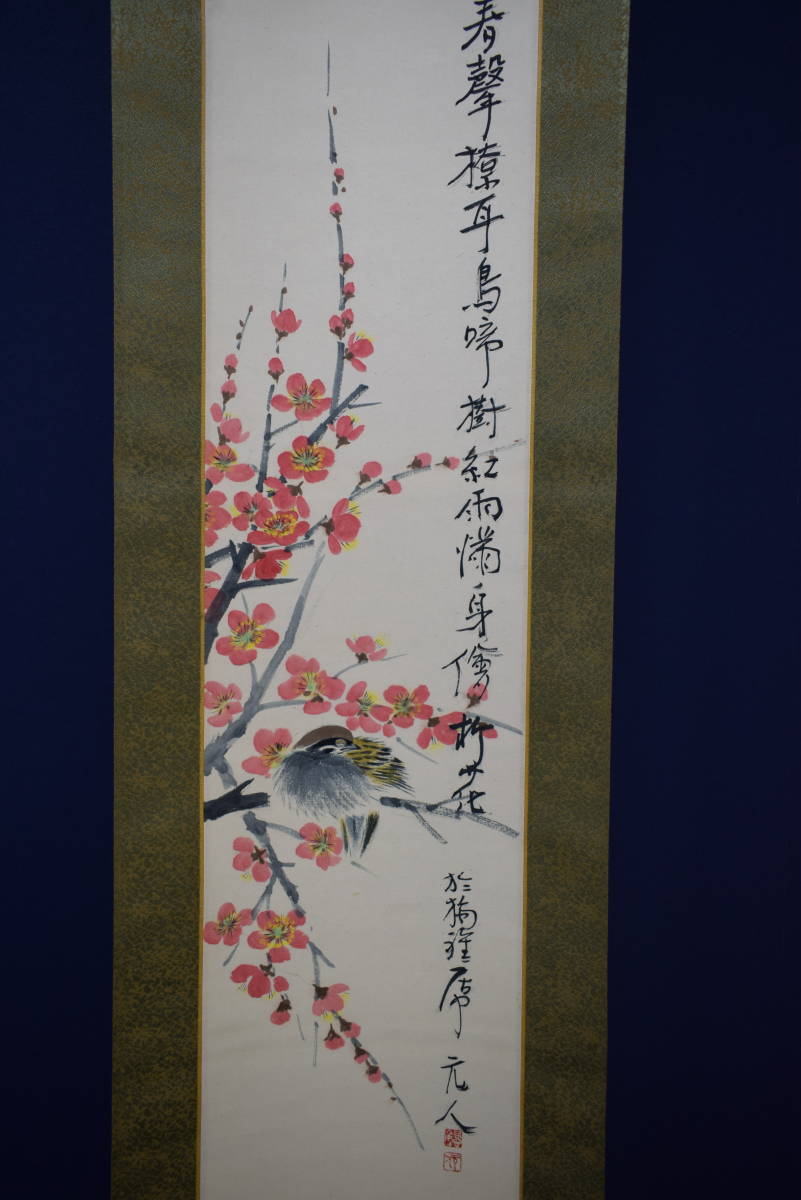 春聲撩耳鳥啼樹紅雨滿身僧折花
於 席 元人